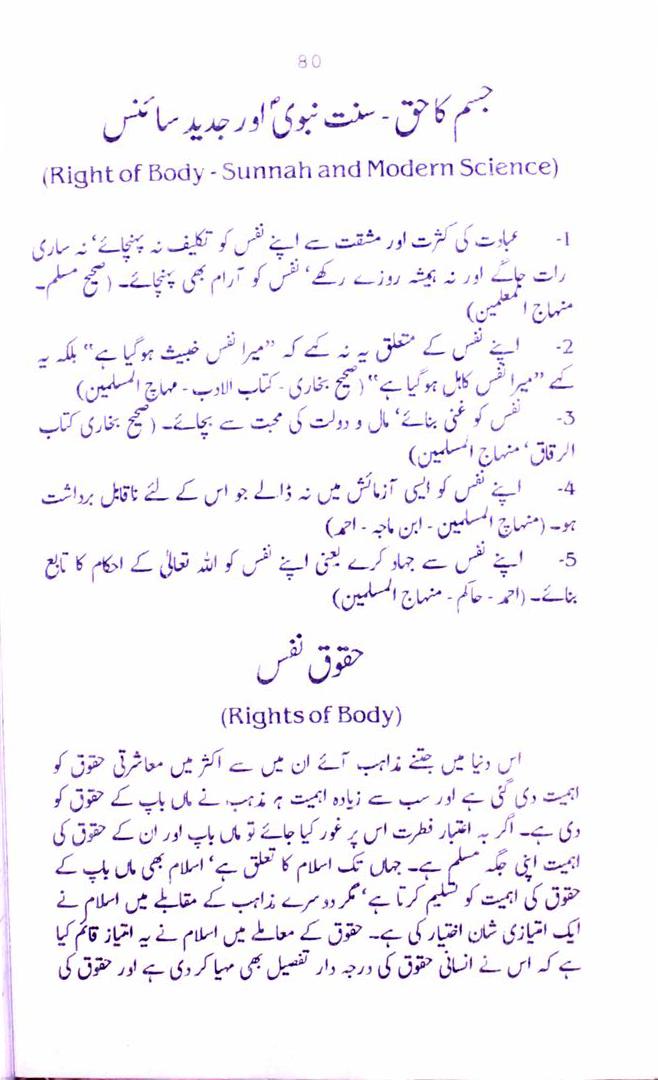 80
جسم کا حق - سنت نبویؐ اور جدید سائنس
(Right of Body - Sunnah and Modern Science)
1- عبادت کی کثرت اور مشقت سے اپنے نفس کو تکلیف نہ پہنچائے، نہ ساری
رات جاگے اور نہ ہمیشہ روزے رکھے، نفس کو آرام بھی پہنچائے۔ (صحیح مسلم۔
منہاج المعلمین)
2- اپنے نفس کے متعلق یہ نہ کہے کہ ”میرا نفس خبیث ہوگیا ہے“ بلکہ یہ
کہے ”میرا نفس کاہل ہوگیا ہے“ (صحیح بخاری - کتاب الادب - مہاج المسلمین)
3- نفس کو غنی بنائے، مال و دولت کی محبت سے بچائے۔ (صحیح بخاری کتاب
الرقاق، منہاج المسلمین)
4- اپنے نفس کو ایسی آزمائش میں نہ ڈالے جو اس کے لئے ناقابل برداشت
ہو۔ (منہاج المسلمین - ابن ماجہ - احمد)
5- اپنے نفس سے جہاد کرے یعنی اپنے نفس کو اللہ تعالیٰ کے احکام کا تابع
بنائے۔ (احمد - حاکم - منہاج المسلمین)
حقوق نفس
(Rights of Body)
اس دنیا میں جتنے مذاہب آئے ان میں سے اکثر میں معاشرتی حقوق کو
اہمیت دی گئی ہے اور سب سے زیادہ اہمیت ہر مذہب نے ماں باپ کے حقوق کو
دی ہے۔ اگر بہ اعتبار فطرت اس پر غور کیا جائے تو ماں باپ اور ان کے حقوق کی
اہمیت اپنی جگہ مسلم ہے۔ جہاں تک اسلام کا تعلق ہے، اسلام بھی ماں باپ کے
حقوق کی اہمیت کو تسلیم کرتا ہے، مگر دوسرے مذاہب کے مقابلے میں اسلام نے
ایک امتیازی شان اختیار کی ہے۔ حقوق کے معاملے میں اسلام نے یہ امتیاز قائم کیا
ہے کہ اس نے انسانی حقوق کی درجہ دار تفصیل بھی مہیا کر دی ہے اور حقوق کی